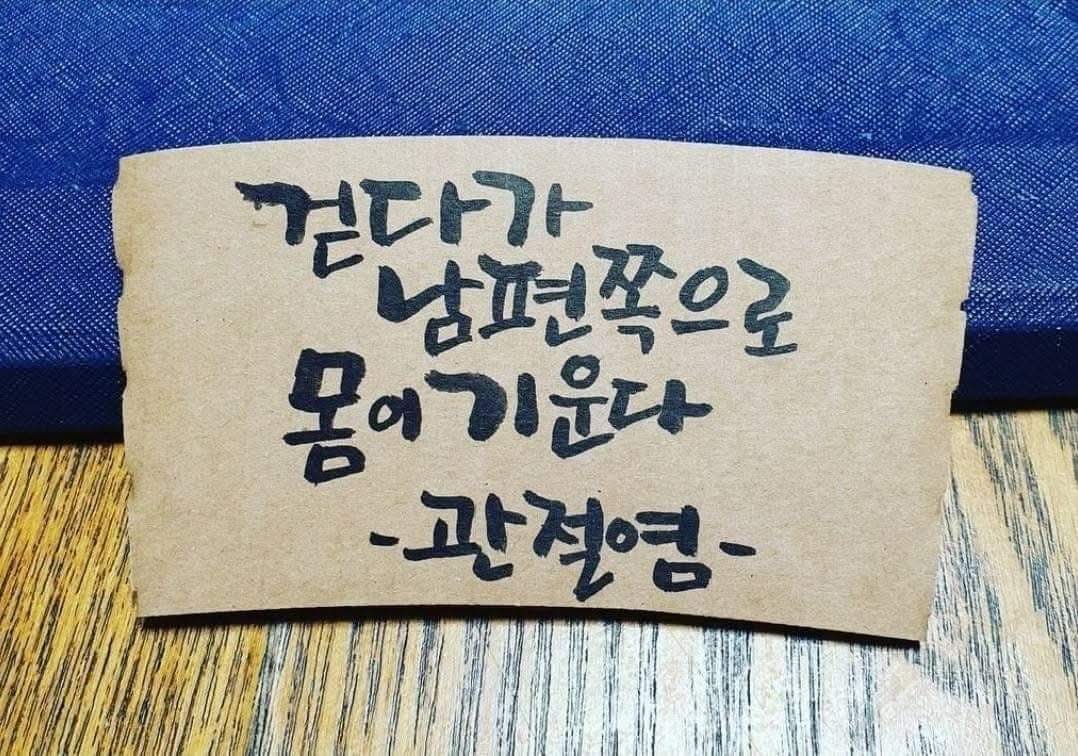 걷다가
남편쪽으로
몸이 기운다
-관절염-